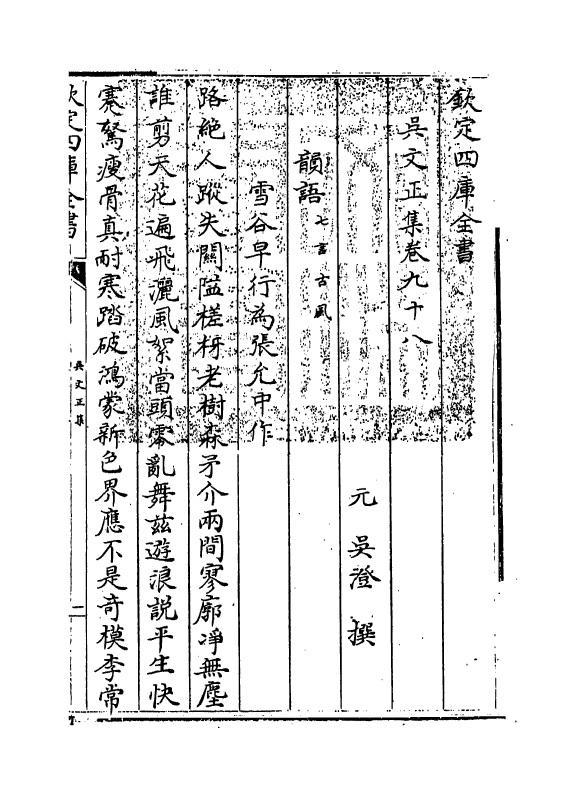 欽定四庫全書
吳文正集卷九十八
元 吳澄 撰
韻語七言古風
雪谷早行為張允中作
路絶人蹤失關隘槎枒老樹森矛介兩間寥廓凈無塵
誰剪天花遍飛灑風絮當頭零亂舞兹遊浪説平生快
蹇驽瘦骨真耐寒踏破鴻蒙新色界應不是奇模李常
欽定四庫全書
吳文正集